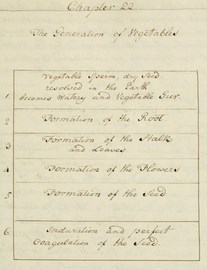 Chapter 22
The Generation of Vegetables
Vegetable Sperm, dry Seed
resolved in the Earth
1 becomes Watery and Vegetable
2 Formation of the Root
3 Formation of the Stalk
and Leaves
4 Formation of the Flowers
5 Formation of the Seed
6 Induration and perfect
Coagulation of the Seed.